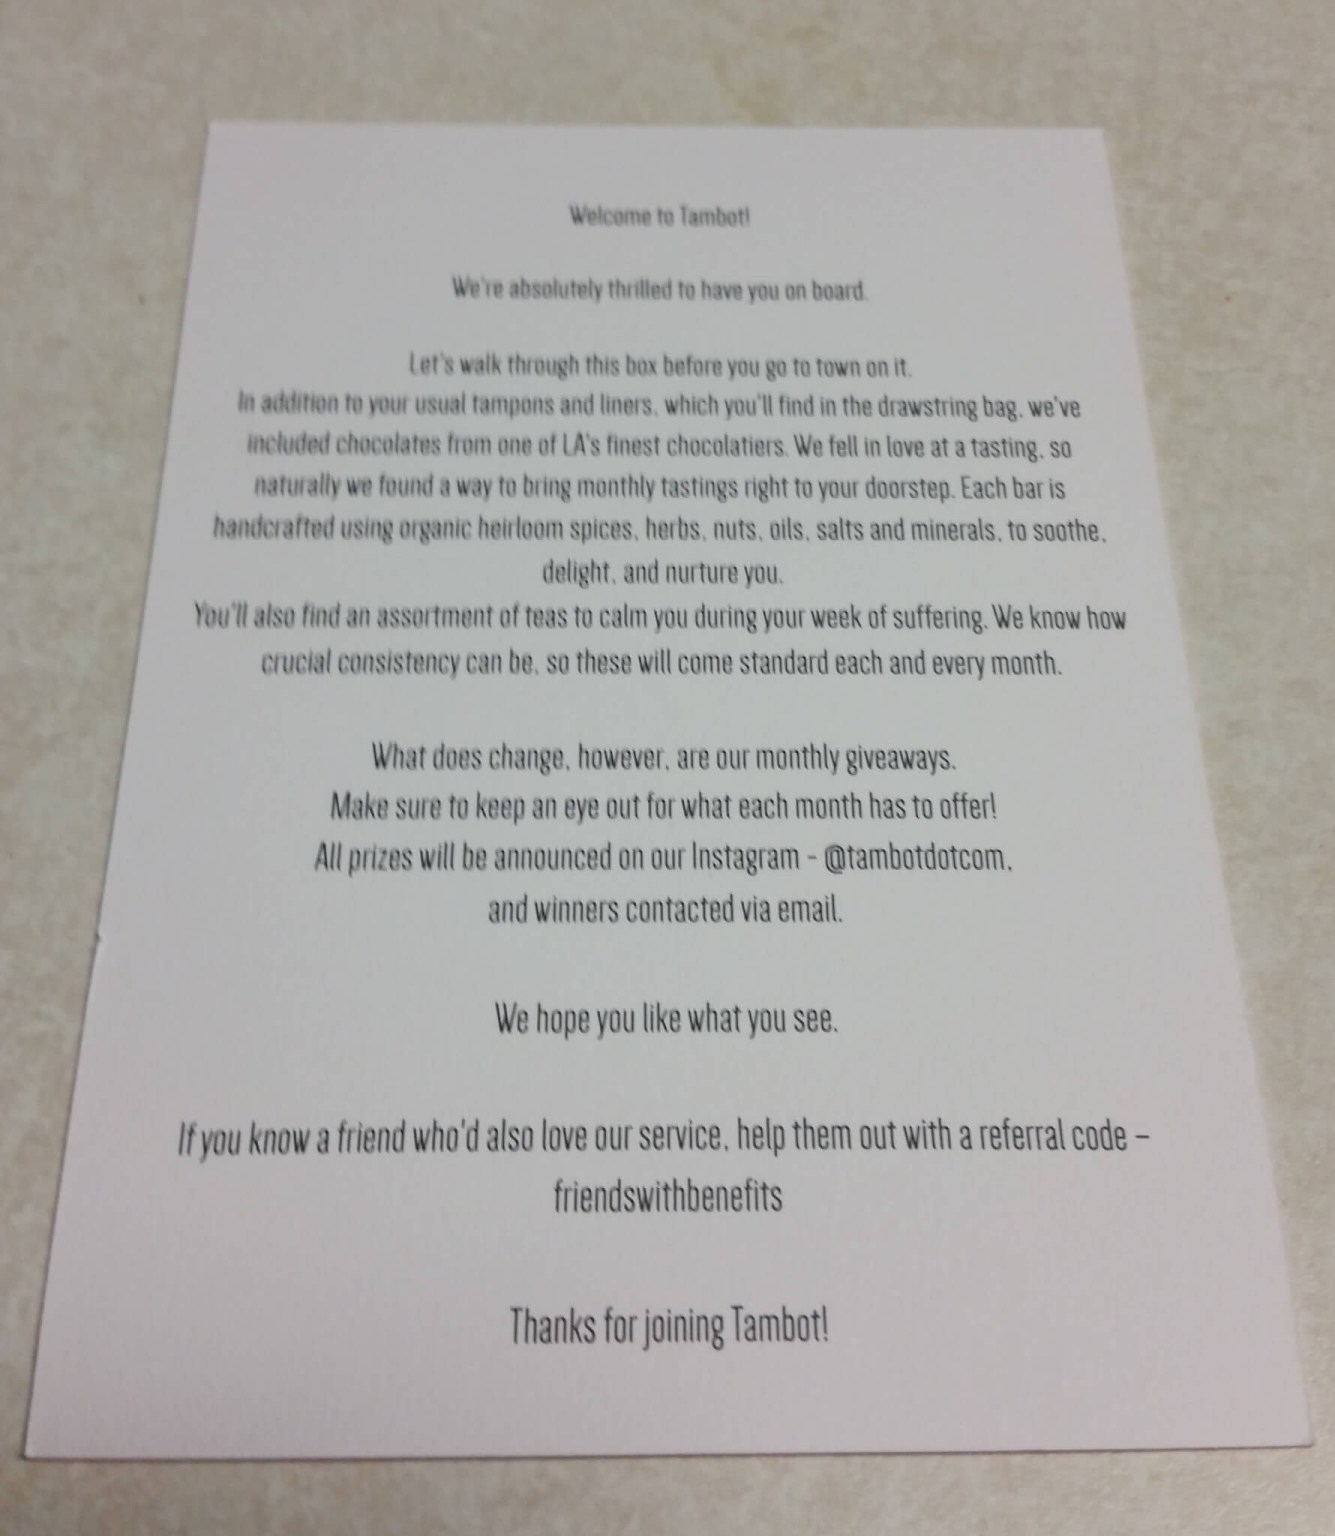 Welcome to Tambot!
We're absolutely thrilled to have you on board.
Let's walk through this box before you go to town on it.
In addition to your usual tampons and liners, which you'll find in the drawstring bag, we've
included chocolates from one of LA's finest chocolatiers. We fell in love at a tasting, so
naturally we found a way to bring monthly tastings right to your doorstep. Each bar is
handcrafted using organic heirloom spices, herbs, nuts, oils, salts and minerals, to soothe,
delight, and nurture you.
You'll also find an assortment of teas to calm you during your week of suffering. We know how
crucial consistency can be, so these will come standard each and every month.
What does change, however, are our monthly giveaways.
Make sure to keep an eye out for what each month has to offer!
All prizes will be announced on our Instagram - @tambotdotcom,
and winners contacted via email.
We hope you like what you see.
If you know a friend who'd also love our service, help them out with a referral code –
friendswithbenefits
Thanks for joining Tambot!